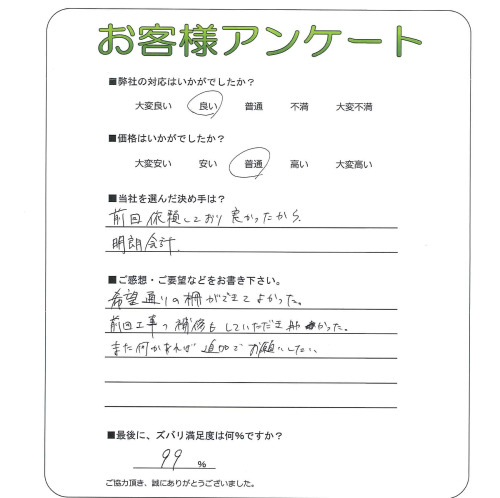 お客様アンケート
■弊社の対応はいかがでしたか？
大変良い 良い 普通 不満 大変不満
■価格はいかがでしたか？
大変安い 安い 普通 高い 大変高い
■当社を選んだ決め手は？
前回依頼しており良かったから
明朗会計
■ご感想・ご要望などをお書き下さい。
希望通りの棚ができてよかった。
前回工事の補修もしていただき助かった。
また何かあれば追加でお願いしたい。
■最後に、ズバリ満足度は何%ですか？
99 %
ご協力頂き、誠にありがとうございました。